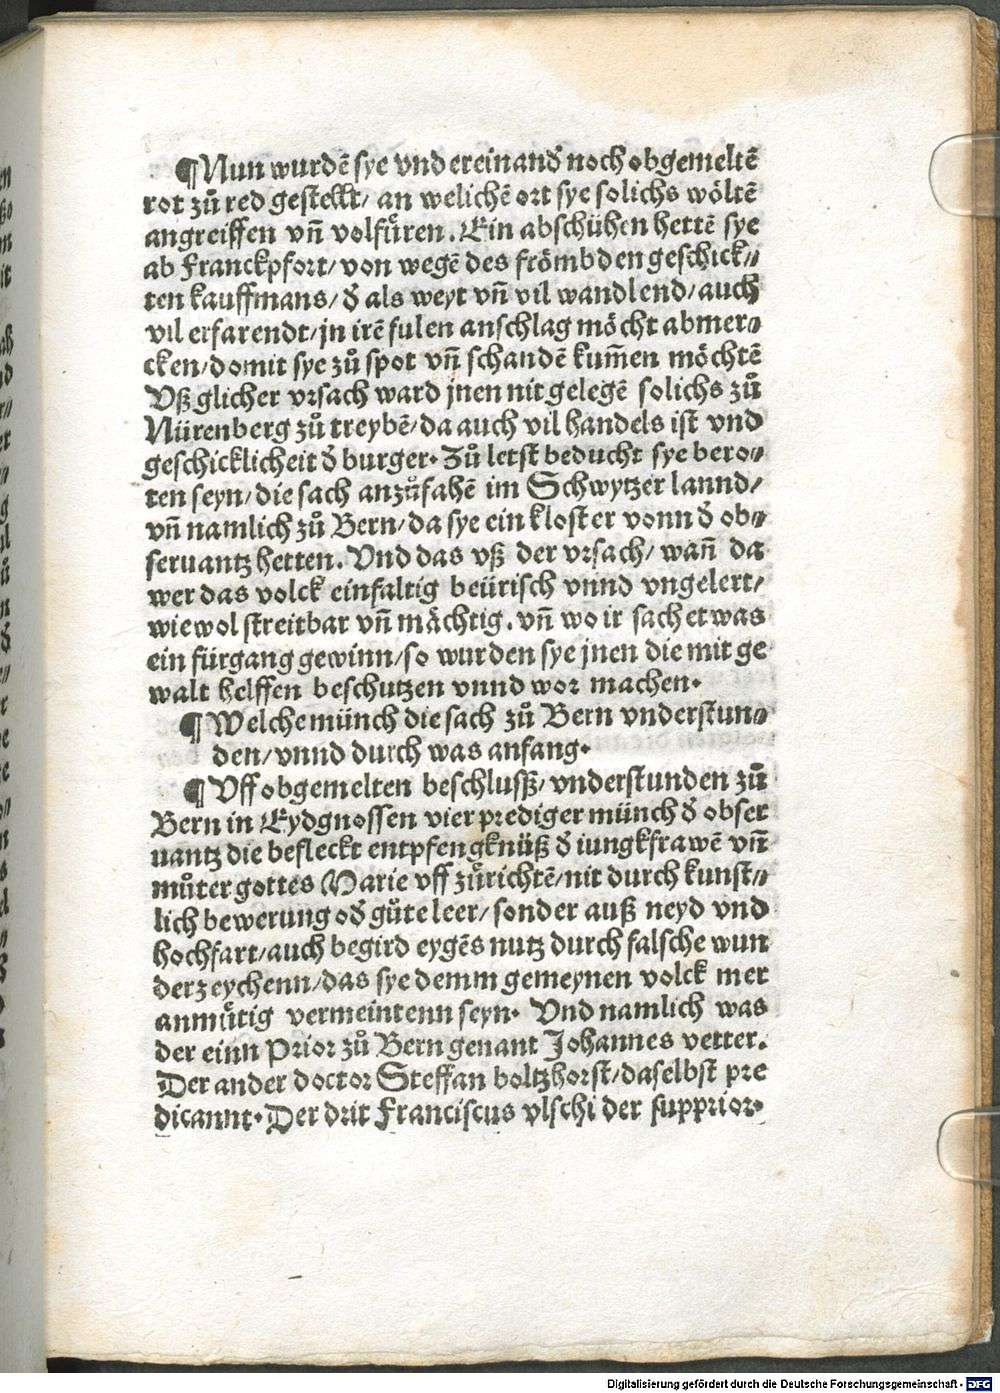 ¶Nun wurdē sye vnd ereinand̄ noch obgemeltē
rot zů red gestellt/ an welichē ort sye solichs wöltē
angreiffen vn̄ volfüren. Ein abschühen hettē sye
ab Franckpfort/ von wegē des frömbden geschick⸗
ten kauffmans/ d̄ als weyt vn̄ vil wandlend/ auch
vil erfarendt/ jn irē fulen anschlag möcht abmer⸗
cken/ domit sye zů spot vn̄ schandē kum̄en möchtē
Vß glicher vrsach ward jnen nit gelegē solichs zů
Nürenberg zů treybē/ da auch vil handels ist vnd
geschicklicheit d̄ burger. Zů letst beducht sye bero⸗
ten seyn/ die sach anzůfahē im Schwytzer lannd/
vn̄ namlich zů Bern/ da sye ein kloster vonn d̄ ob⸗
seruantz hetten. Vnd das vß der vrsach/ wan̄ da
wer das volck einfaltig beürisch vnnd vngelert/
wiewol streitbar vn̄ mächtig. vn̄ wo ir sach etwas
ein fürgang gewinn/ so wurden sye jnen die mit ge
walt helffen beschutzen vnnd wor machen.
¶ Welche münch die sach zů Bern vnderstun⸗
den/ vnnd durch was anfang.
¶ Vff obgemelten beschlusß/ vnderstunden zů
Bern in Eydgnossen vier prediger münch d̄ obser
uantz die befleckt entpfengknüß d̄ iungkfrawē vn̄
můter gottes Marie vff zůrichtē/ nit durch kunst⸗
lich bewerung od̄ gůte leer/ sonder auß neyd vnd
hochfart/ auch begird eygēs nutz durch falsche wun
derzeychenn/ das sye demm gemeynen volck mer
anmütig vermeintenn seyn. Vnd namlich was
der einn Prior zů Bern genant Johannes vetter.
Der ander doctor Steffan boltzhorst/ daselbst pre
dicannt. Der drit Franciscus vlschi der supprior.
Digitalisierung gefördert durch die Deutsche Forschungsgemeinschaft - DFG